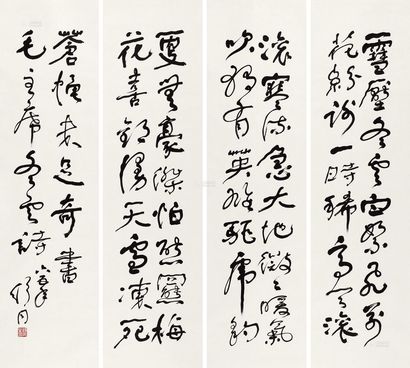 雪壓冬雲白絮飛萬
花紛謝一時稀高天滾
滾寒流急大地微々暖氣
吹獨有英雄驅虎豹
更無豪傑怕熊羆梅
花喜歡漫天雪凍死
蒼蠅未足奇 書
毛主席冬雲詩
舒同